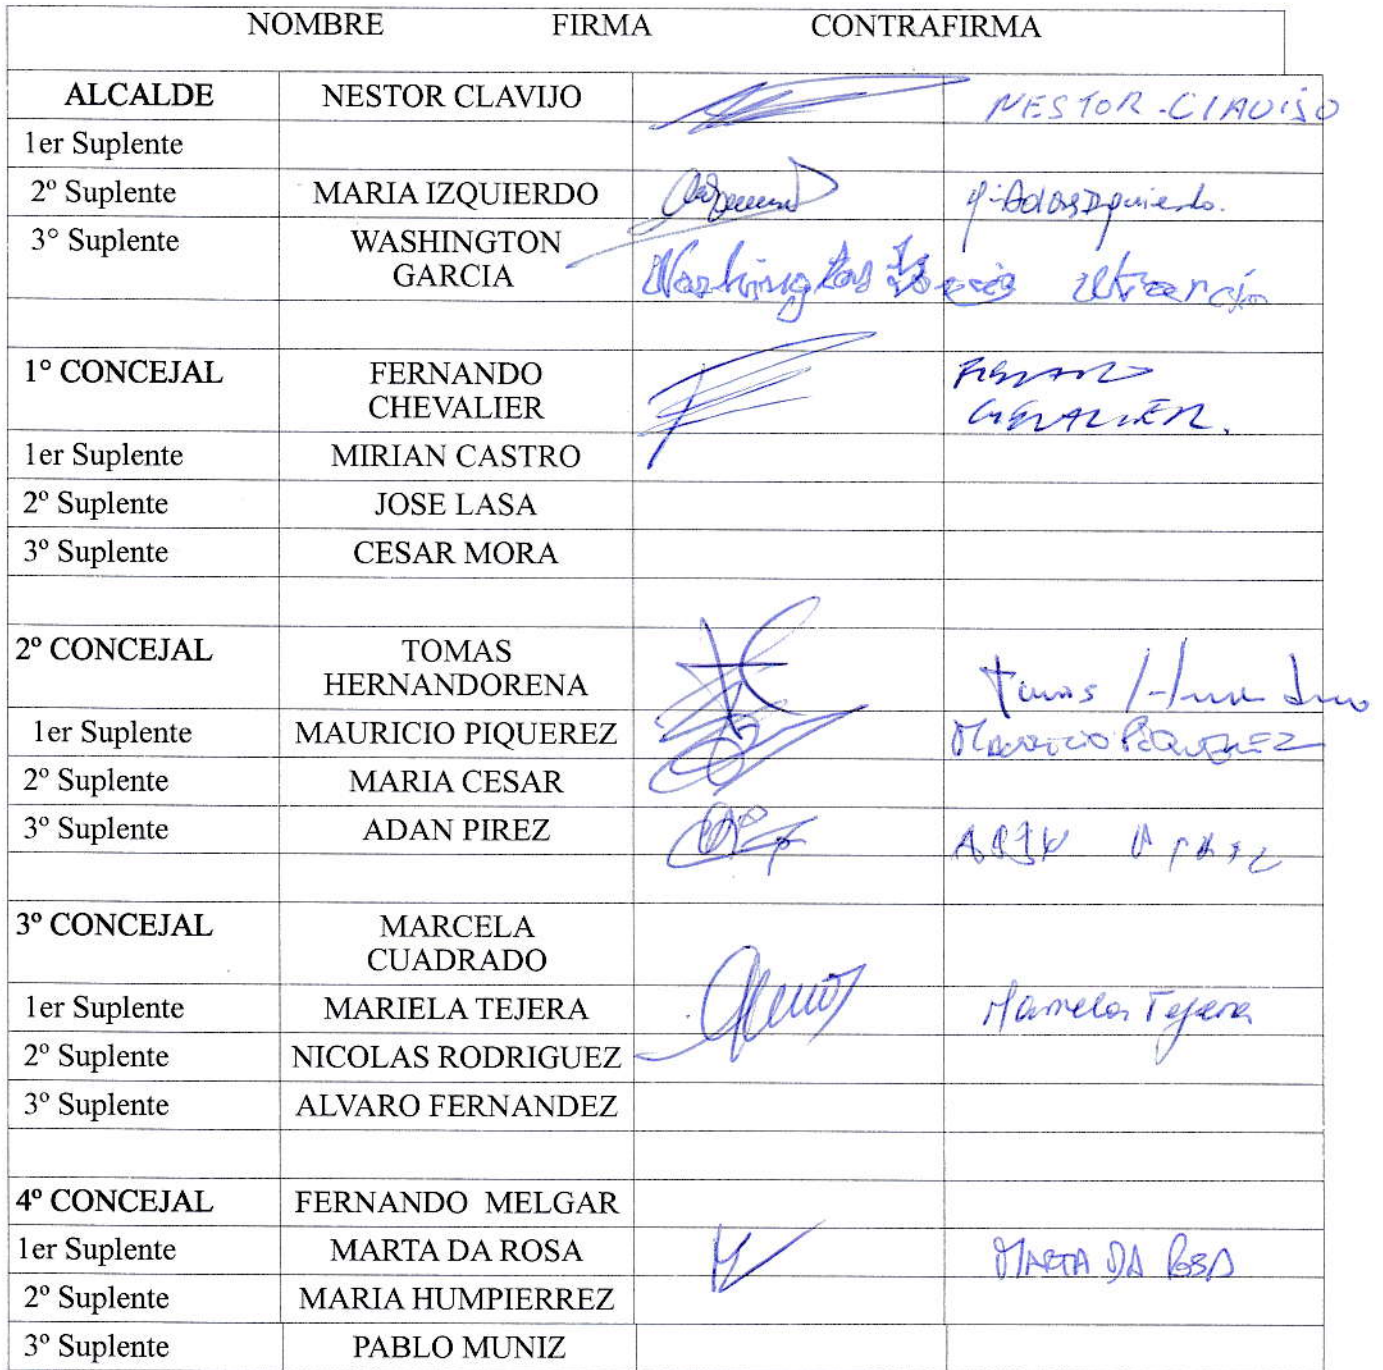 NOMBRE FIRMA CONTRAFIRMA
ALCALDE NESTOR CLAVIJO NESTOR-CLAVIJO
1er Suplente
2º Suplente MARIA IZQUIERDO
3° Suplente WASHINGTON
GARCIA Washington
1° CONCEJAL FERNANDO
CHEVALIER
1er Suplente MIRIAN CASTRO
2º Suplente JOSE LASA
3º Suplente CESAR MORA
2º CONCEJAL TOMAS
HERNANDORENA Tomas
1er Suplente MAURICIO PIQUEREZ MAURICIO PIQUEREZ
2º Suplente MARIA CESAR
3º Suplente ADAN PIREZ
3º CONCEJAL MARCELA
CUADRADO
1er Suplente MARIELA TEJERA Mariela Tejera
2º Suplente NICOLAS RODRIGUEZ
3º Suplente ALVARO FERNANDEZ
4º CONCEJAL FERNANDO MELGAR
1er Suplente MARTA DA ROSA MARTA DA ROSA
2º Suplente MARIA HUMPIERREZ
3º Suplente PABLO MUNIZ